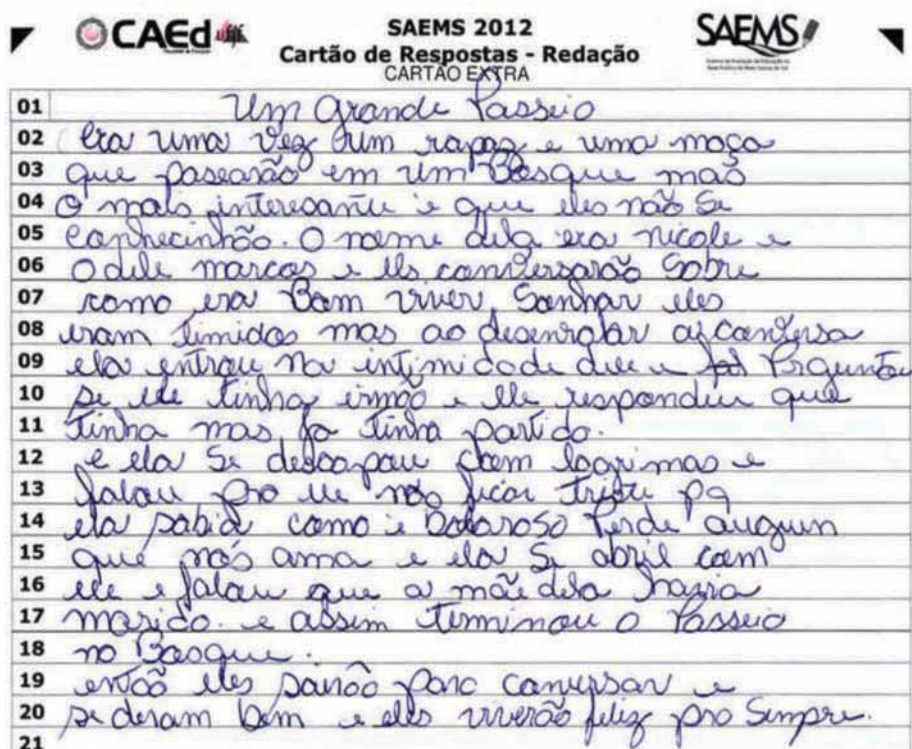 CAEd
SAEMS 2012
Cartão de Respostas - Redação
CARTÃO EXTRA
SAEMS
01 Um Grande Passeio
02 Era uma vez um rapaz e uma moça
03 que pasearão em um Bosque mas
04 O mais interesante e que eles não Se
05 conhecinhão. O nome dela era nicole e
06 O dele marcos e eles conversarão Sobre
07 como era Bom viver, Sonhar eles
08 eram timidos mas ao desenrolar a conversa
09 ela entrou na intimidade dele e Perguntou
10 se ele tinha irmão e ele respondeu que
11 tinha mas ja tinha partido.
12 e ela Se descopou com lagrimas e
13 falou pro ele não ficar triste pq
14 ela sabia como e Doloroso Perde auguin
15 que nós ama e ela Se abril com
16 ele e falou que a mãe dela havia
17 morido. e assim terminou o Passeio
18 no Bosque.
19 então eles sairão para conversar e
20 se deram bem e eles viverão feliz pro Sempre.
21